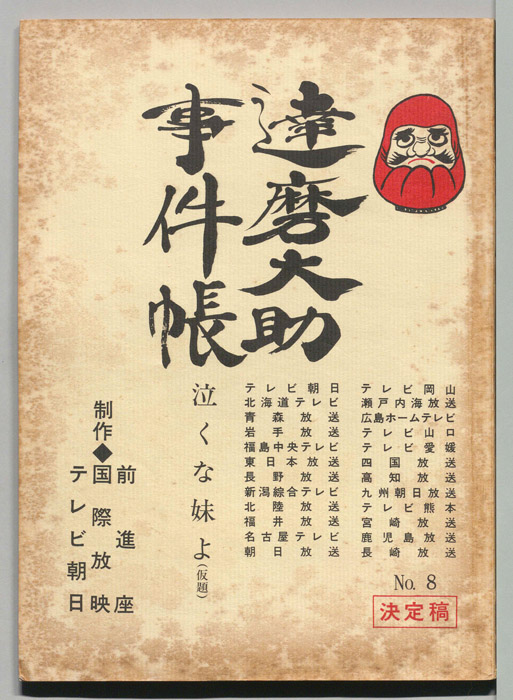 達磨大助
事件帳
テレビ岡山
瀬戸内海放送
広島ホームテレビ
テレビ山口
テレビ愛媛
四国放送
高知放送
九州朝日放送
テレビ熊本
宮崎放送
鹿児島放送
長崎放送
テレビ朝日
北海道テレビ
青森放送
岩手放送
福島中央テレビ
東日本放送
長野放送
新潟綜合テレビ
北陸放送
福井放送
名古屋テレビ
朝日放送
No. 8
決定稿
泣くな妹よ(仮題)
制作◆
前進座
国際放映
テレビ朝日